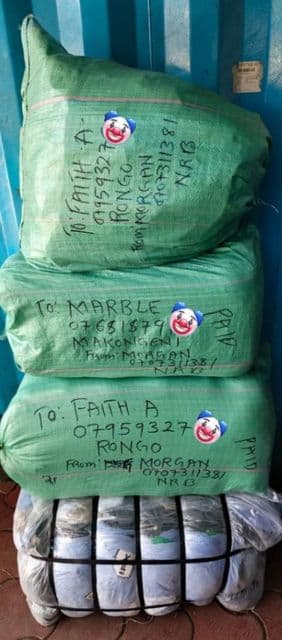 To: FAITH A.
07959327
RONGO
From MORGAN
0707311381
NRB
TO: MARBLE
07681879
MAKONGENI
From: MORGAN
0707311381
NRB
PAID
TO: FAITH A
07959327
RONGO
From: MORGAN
0707311381
NRB
PAID